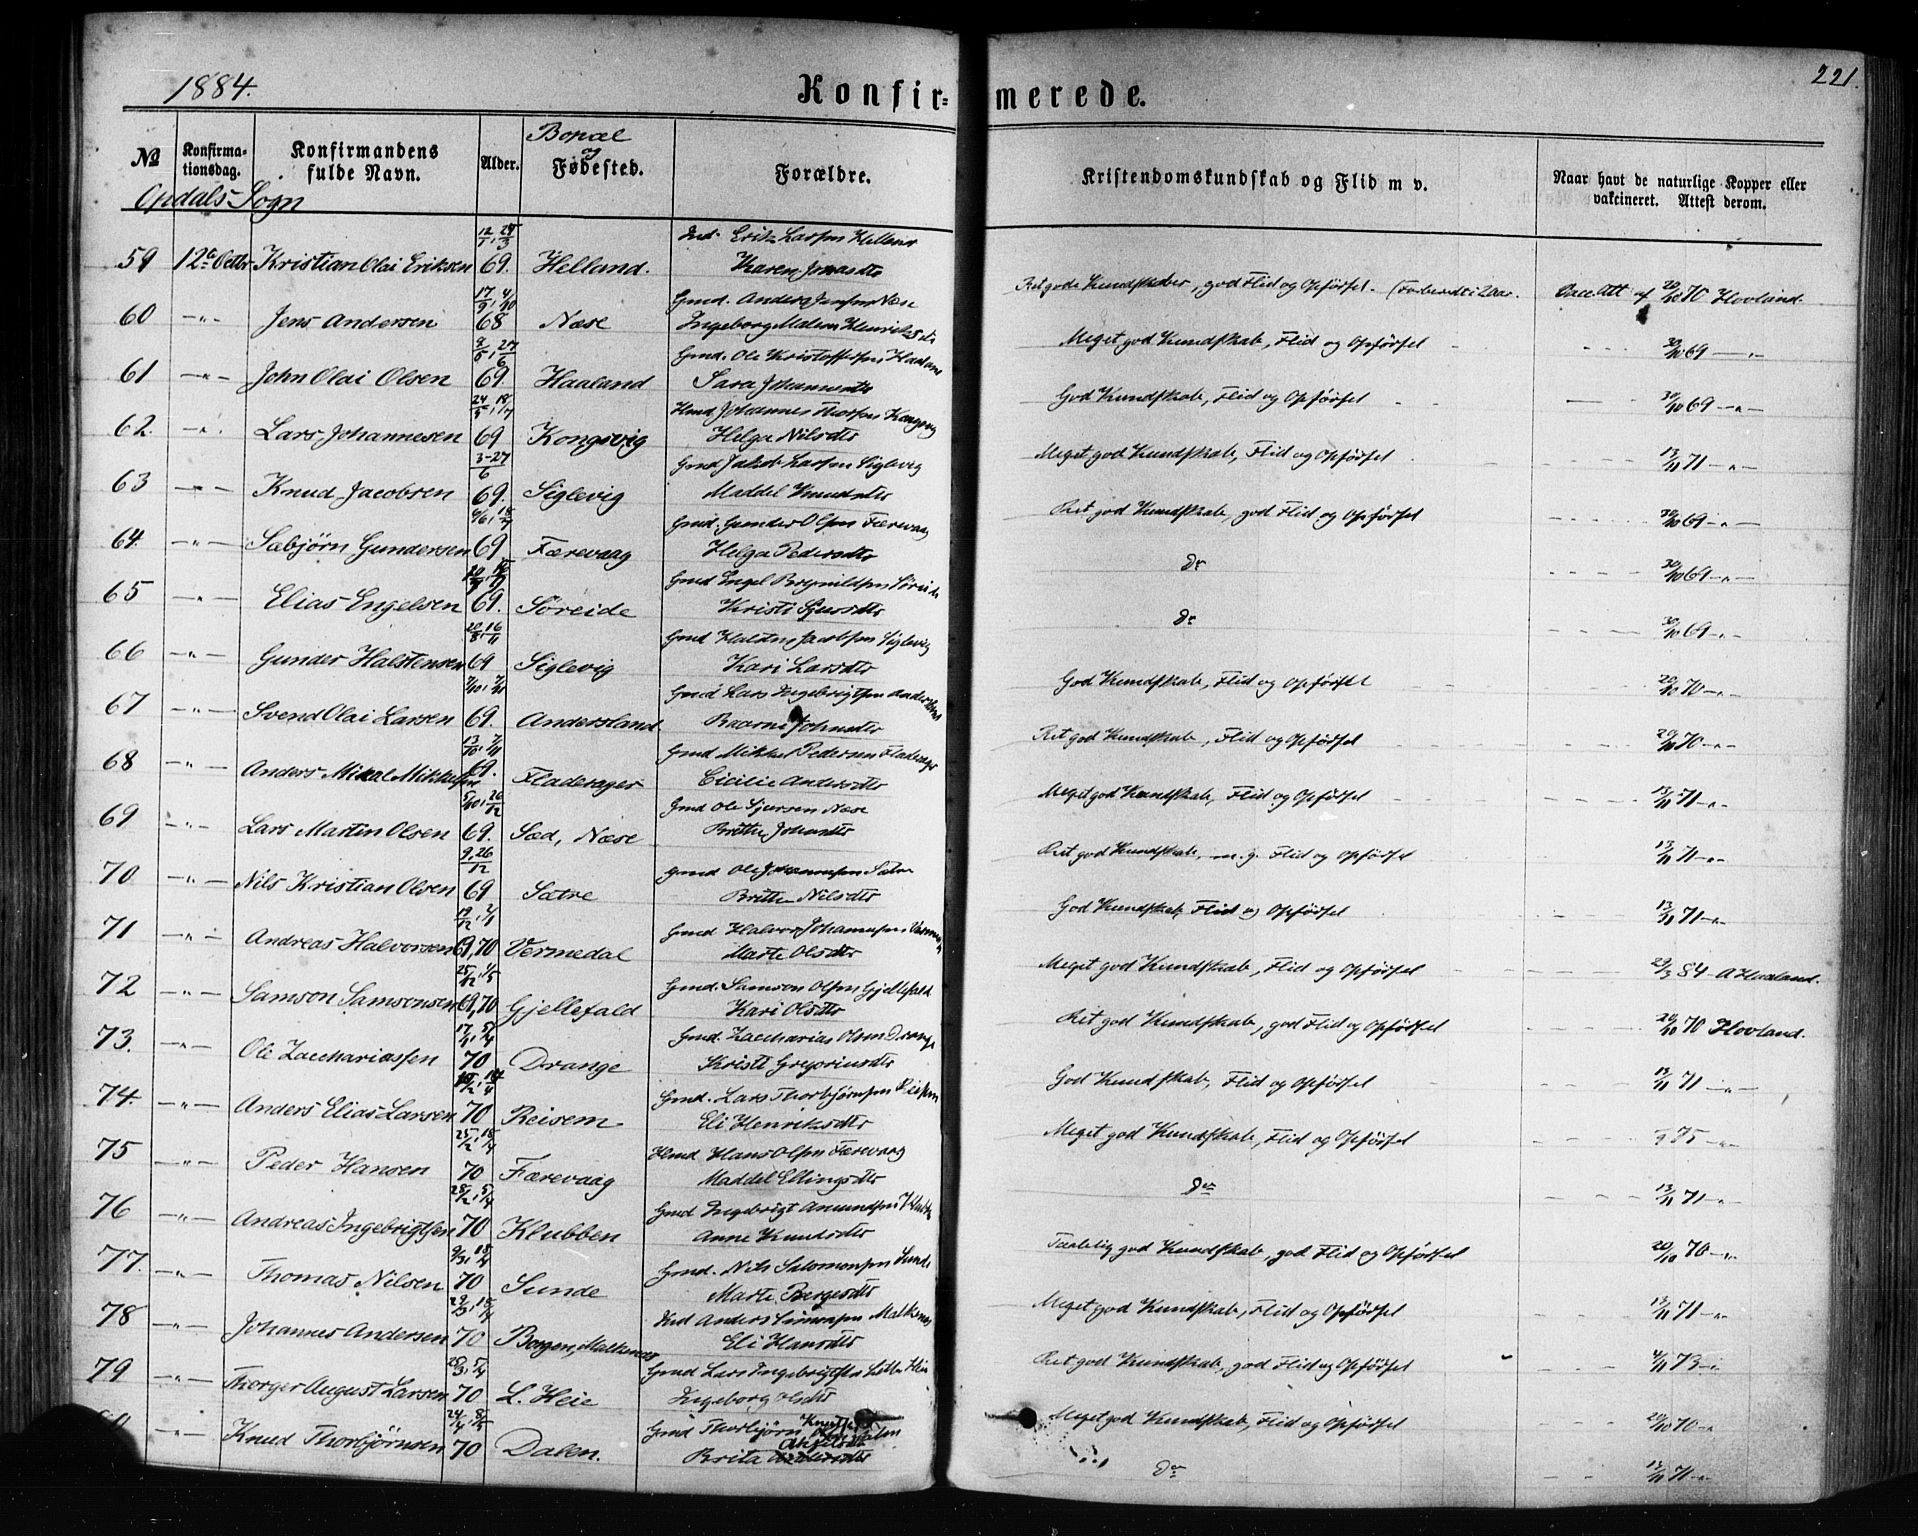 1884.
Konfir-
merede.
221.
No
Konfirma-
tionsdag.
Konfirmandens
fulde Navn.
Alder.
Bopæl
og
Fødested.
Forældre.
Kristendomskundskab og Flid m v.
Naar havt de naturlige Kopper eller
vakcineret. Attest derom.
Opdals Sogn
59 12te Octbr Kristian Olai Eriksen 12/1, 25/3 69. Helland. Ind. Erik Larsen Karen Jonasdtr Ret gode Kundskaber, god Flid og Opførsel. (Forberedt i 2 Aar. 70 Hovland.
60 -"- Jens Andersen 17/9, 4/10 68 Næse Gmd. Anders Jensen Næse Ingeborg Malene Meget god Kundskab, Flid og Opførsel 30/10 69 -"-
61 -"- John Olai Olsen 27/6 69. Haaland Gmd. Ole Kristoffersen Sara Johannesdtr God Kundskab, Flid og Opførsel 30/10 69 -"-
62. -"- Lars Johannesen 18/7 69 Kongsvig Hmd Johannes Helga Nilsdtr Meget god Kundskab, Flid og Opførsel 13/11 71 -"-
63 -"- Knud Jacobsen 3-27/6 69. Siglevig Gmd Jakob Larsen Siglevig Maddel Knudsdtr Ret god Kundskab, god Flid og Opførsel 30/10 69 -"-
64. -"- Sæbjørn Gundersen 69 Færevaag Gmd. Gunder Olsen Færevaag Helga Pedersdtr do 30/10 69 -"-
65 -"- Elias Engelsen 69. Søreide Gmd Engel Søreide Kristi Sjursdtr do 30/10 69 -"-
66 -"- Gunder Halstensen 20/8, 16/11 69 Siglevig Gmd Halsten Jacobsen Siglevig Kari Larsdtr God Kundskab, Flid og Opførsel 20/10 70 -"-
67 -"- Svend Olai Larsen 7/10, 7/11 69. Andersland. Gmd Lars Ingebrigtsen Johnsdtr Ret god Kundskab, Flid og Opførsel 20/10 70 -"-
68 -"- Anders Mikal Mikkelsen 13/10, 7/11 69. Fladerager Gmd Mikkel Pedersen Cicilie Andersdtr Meget god Kundskab, Flid og Opførsel 13/11 71 -"-
69 -"- Lars Martin Olsen 5/10, 26/12 69. Sæd, Næse Gmd Ole Sjursen Næse Brithe Johnsdtr Ret god Kundskab, m.g. Flid og Opførsel 13/11 71 -"-
70 -"- Nils Kristian Olsen 9, 26/12 69 Sætre Gmd Ole Brithe Nilsdtr God Kundskab Flid og Opførsel 13/11 71 -"-
71 -"- Andreas Halvorsen 19/12, 2/1 69,70 Vermedal Gmd Halvor Johannesen Marte Olsdtr Meget god Kundskab, Flid og Opførsel 29/3 84 - A Haaland.
72 -"- Samson Samsonsen 25/12, 1/5 69,70 Gjellefald Gmd. Samson Olsen Gjellefald Kari Olsdtr Ret god Kundskab, god Flid og Opførsel 20/10 70 Hovland.
73. -"- Ole Zacchariassen 17/1, 5/4 70 Drange Gmd. Zaccharias Olsen Drange Kristi Gregoriusdtr God Kundskab, Flid og Opførsel 13/11 71 -"-
74. -"- Anders Elias Larsen 70 Reisem Gmd. Lars Thorbjørnsen Eli Henriksdtr Meget god Kundskab, Flid og Opførsel 75 -"-
75 -"- Peder Hansen 25/2, 18/4 70 Færevaag Hmd Hans Olsen Færevaag Maddel Ellingsdtr do 13/11 71 -"-
76 -"- Andreas Ingebrigtsen 28/2, 5/4 70 Klubben Gmd Ingebrigt Amundsen Anne Knudsdtr Taalelig god Kundskab, god Flid og Opførsel 20/10 70 -"-
77. -"- Thomas Nilsen 9/3, 18/4 70 Sunde Gmd. Nils Salomonsen Sunde Marte Børgesdtr Meget god Kundskab, Flid og Opførsel 13/11 71 -"-
78 -"- Johannes Andersen 29/3, 18/4 70 Borgen, Malkenes Ind Anders Simonsen Malkenes Eli Hansdtr Ret god Kundskab, god Flid og Opførsel 4/11 73 -"-
79 -"- Thorger August Larsen 28/3, 5/4 70 L. Heie Gmd Lars Ingebrigtsen Ingeborg Olsdtr Meget god Kundskab, Flid og Opførsel 20/10 70 -"-
-"- Knud Thorbjørnsen 70 Dalen. Gmd Thorbjørn Knutsen Dalen Brita do 13/11 71 -"-